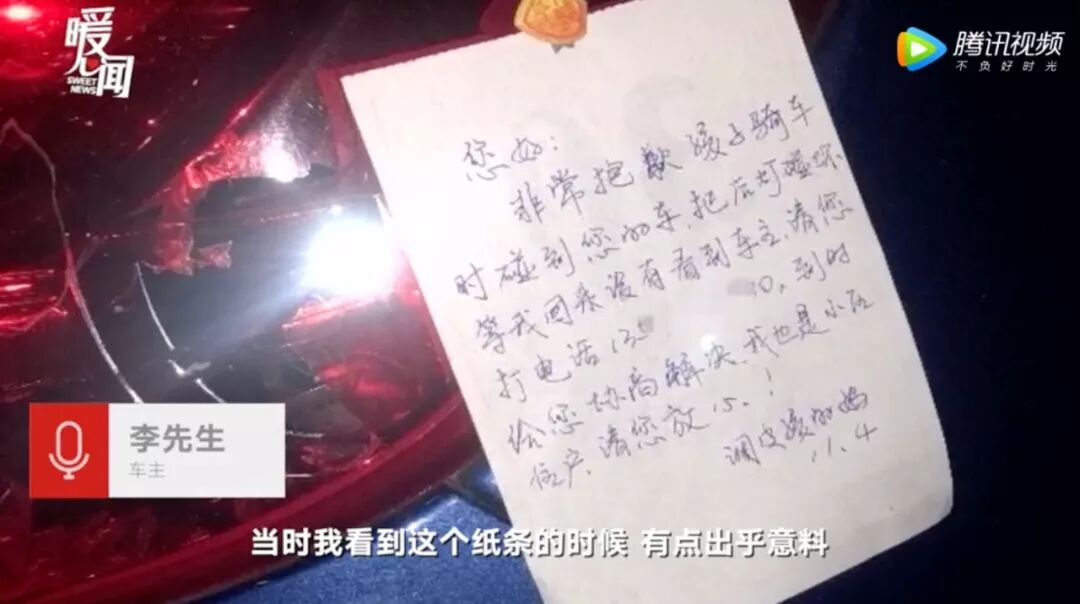 暖闻
SWEET NEWS
腾讯视频
不负好时光
您好:
非常抱歉孩子骑车
时碰到您的车,把后灯碰坏
等我回来没有看到车主,请您
打电话135 0,到时
给您协商解决,我也是小区
住户,请您放心!
调皮孩的妈
11.4
李先生
车主
当时我看到这个纸条的时候 有点出乎意料